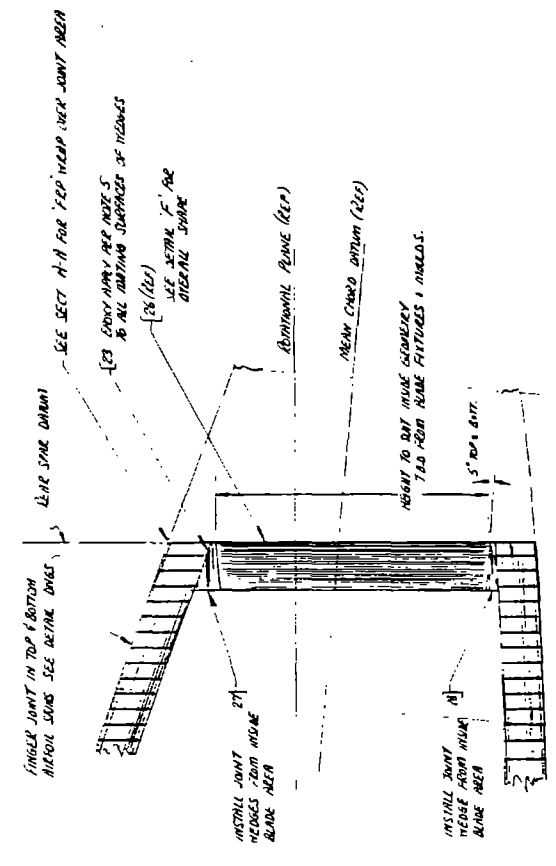 FINGER JOINT IN TOP & BOTTOM
AIRFOIL SKINS SEE DETAIL DWGS
REAR SPAR DATUM
SEE SECT A-A FOR 'FRP' WRAP OVER JOINT AREA
23 EPOXY APPLY PER NOTE 5
TO ALL MATING SURFACES OF WEDGES
26 (REF)
SEE DETAIL 'F' FOR
OVERALL SHAPE
ROTATIONAL PLANE (REF)
MEAN CHORD DATUM (REF)
HEIGHT TO SUIT INSIDE GEOMETRY
T.B.D FROM BLADE FIXTURES & MOLDS.
5° TOP & BOTT.
27
INSTALL JOINT
WEDGES FROM INSIDE
BLADE AREA
INSTALL JOINT
WEDGE FROM INSIDE
BLADE AREA